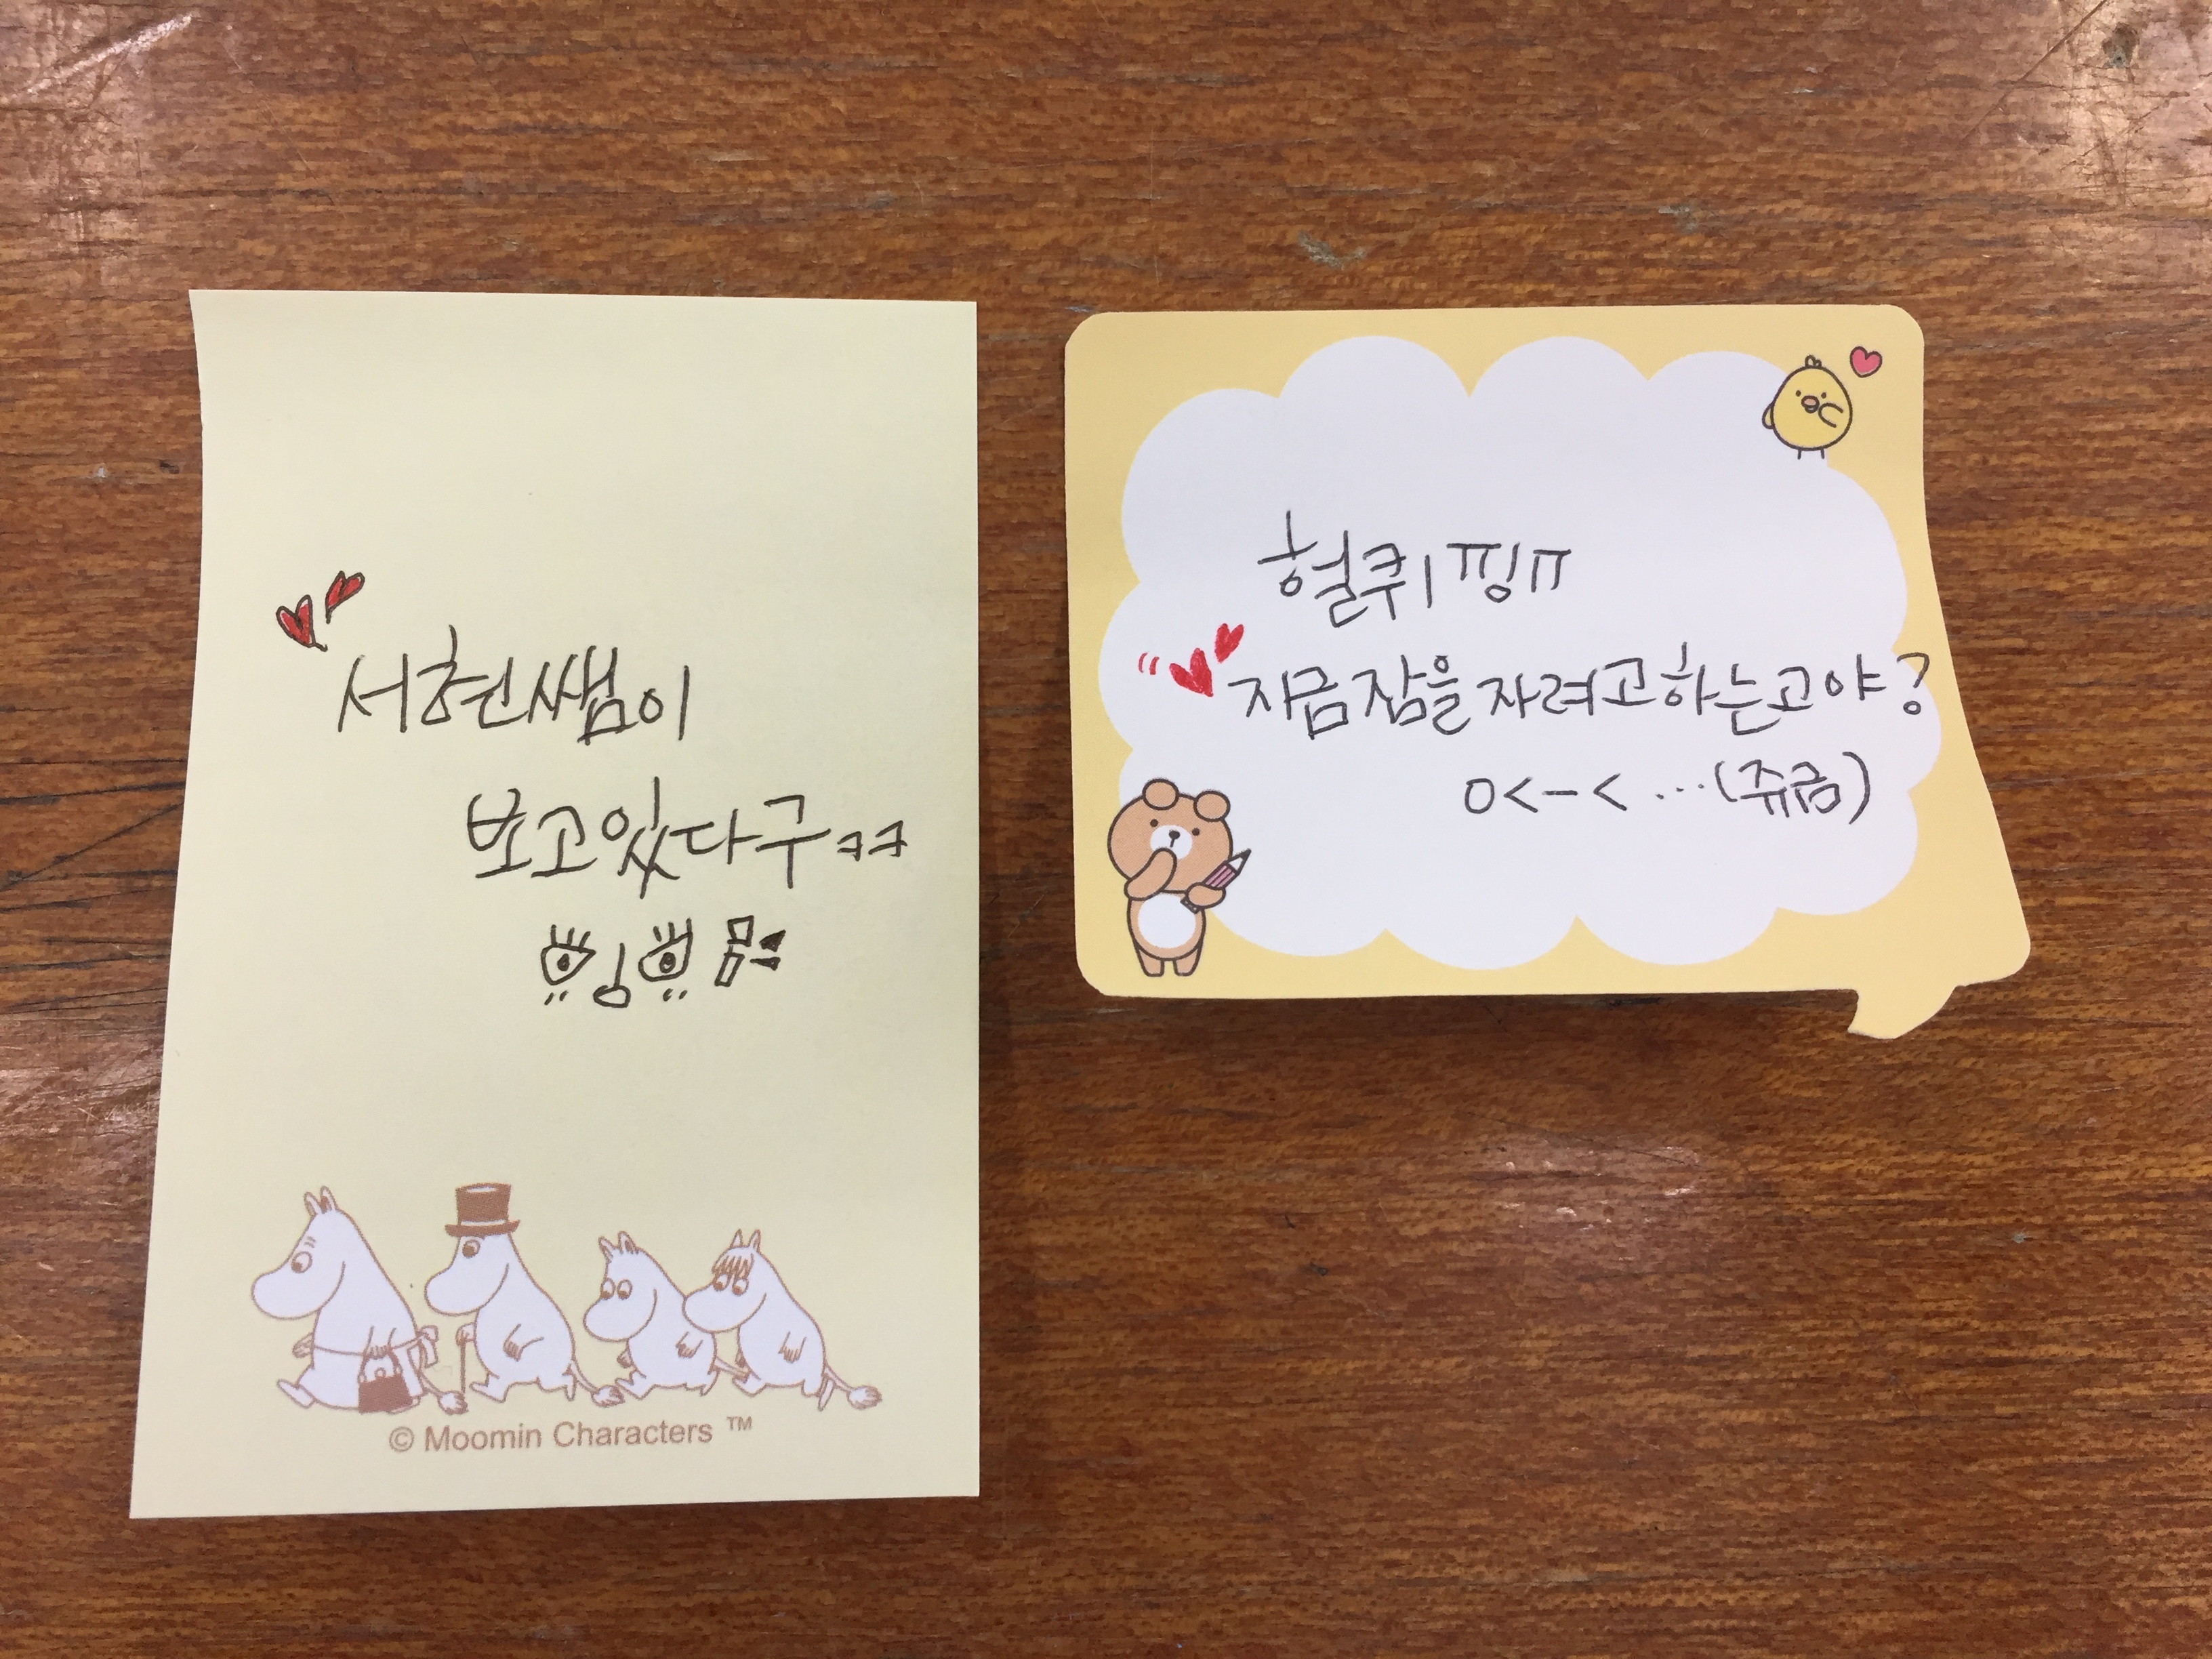 서현쌤이
보고있다구ㅋㅋ
© Moomin Characters ™
헐퀴 ㅠㅠ
지금 잠을 자려고 하는고야?
O<-< ...(쥬금)